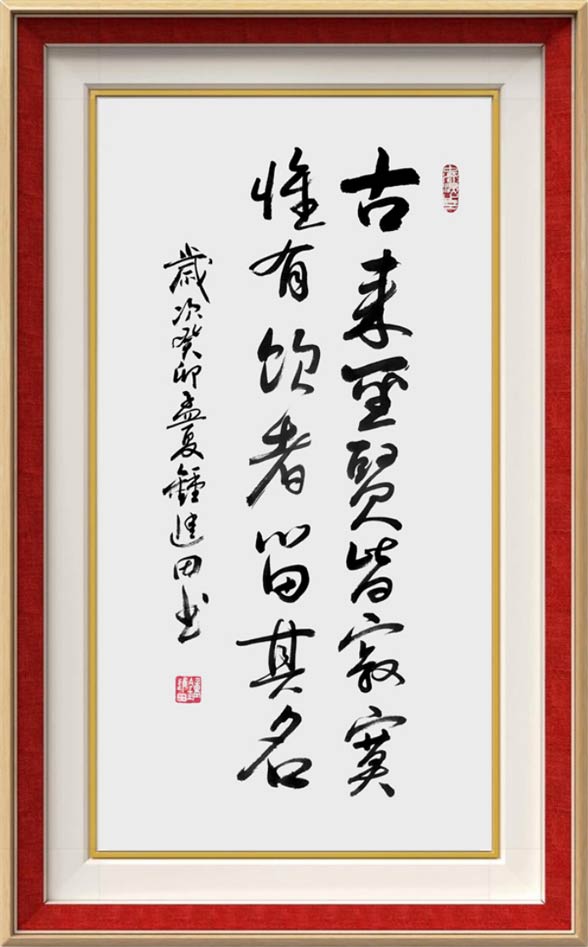 古来聖贤皆寂寞
惟有饮者留其名
歲次癸卯孟夏鍾進田书